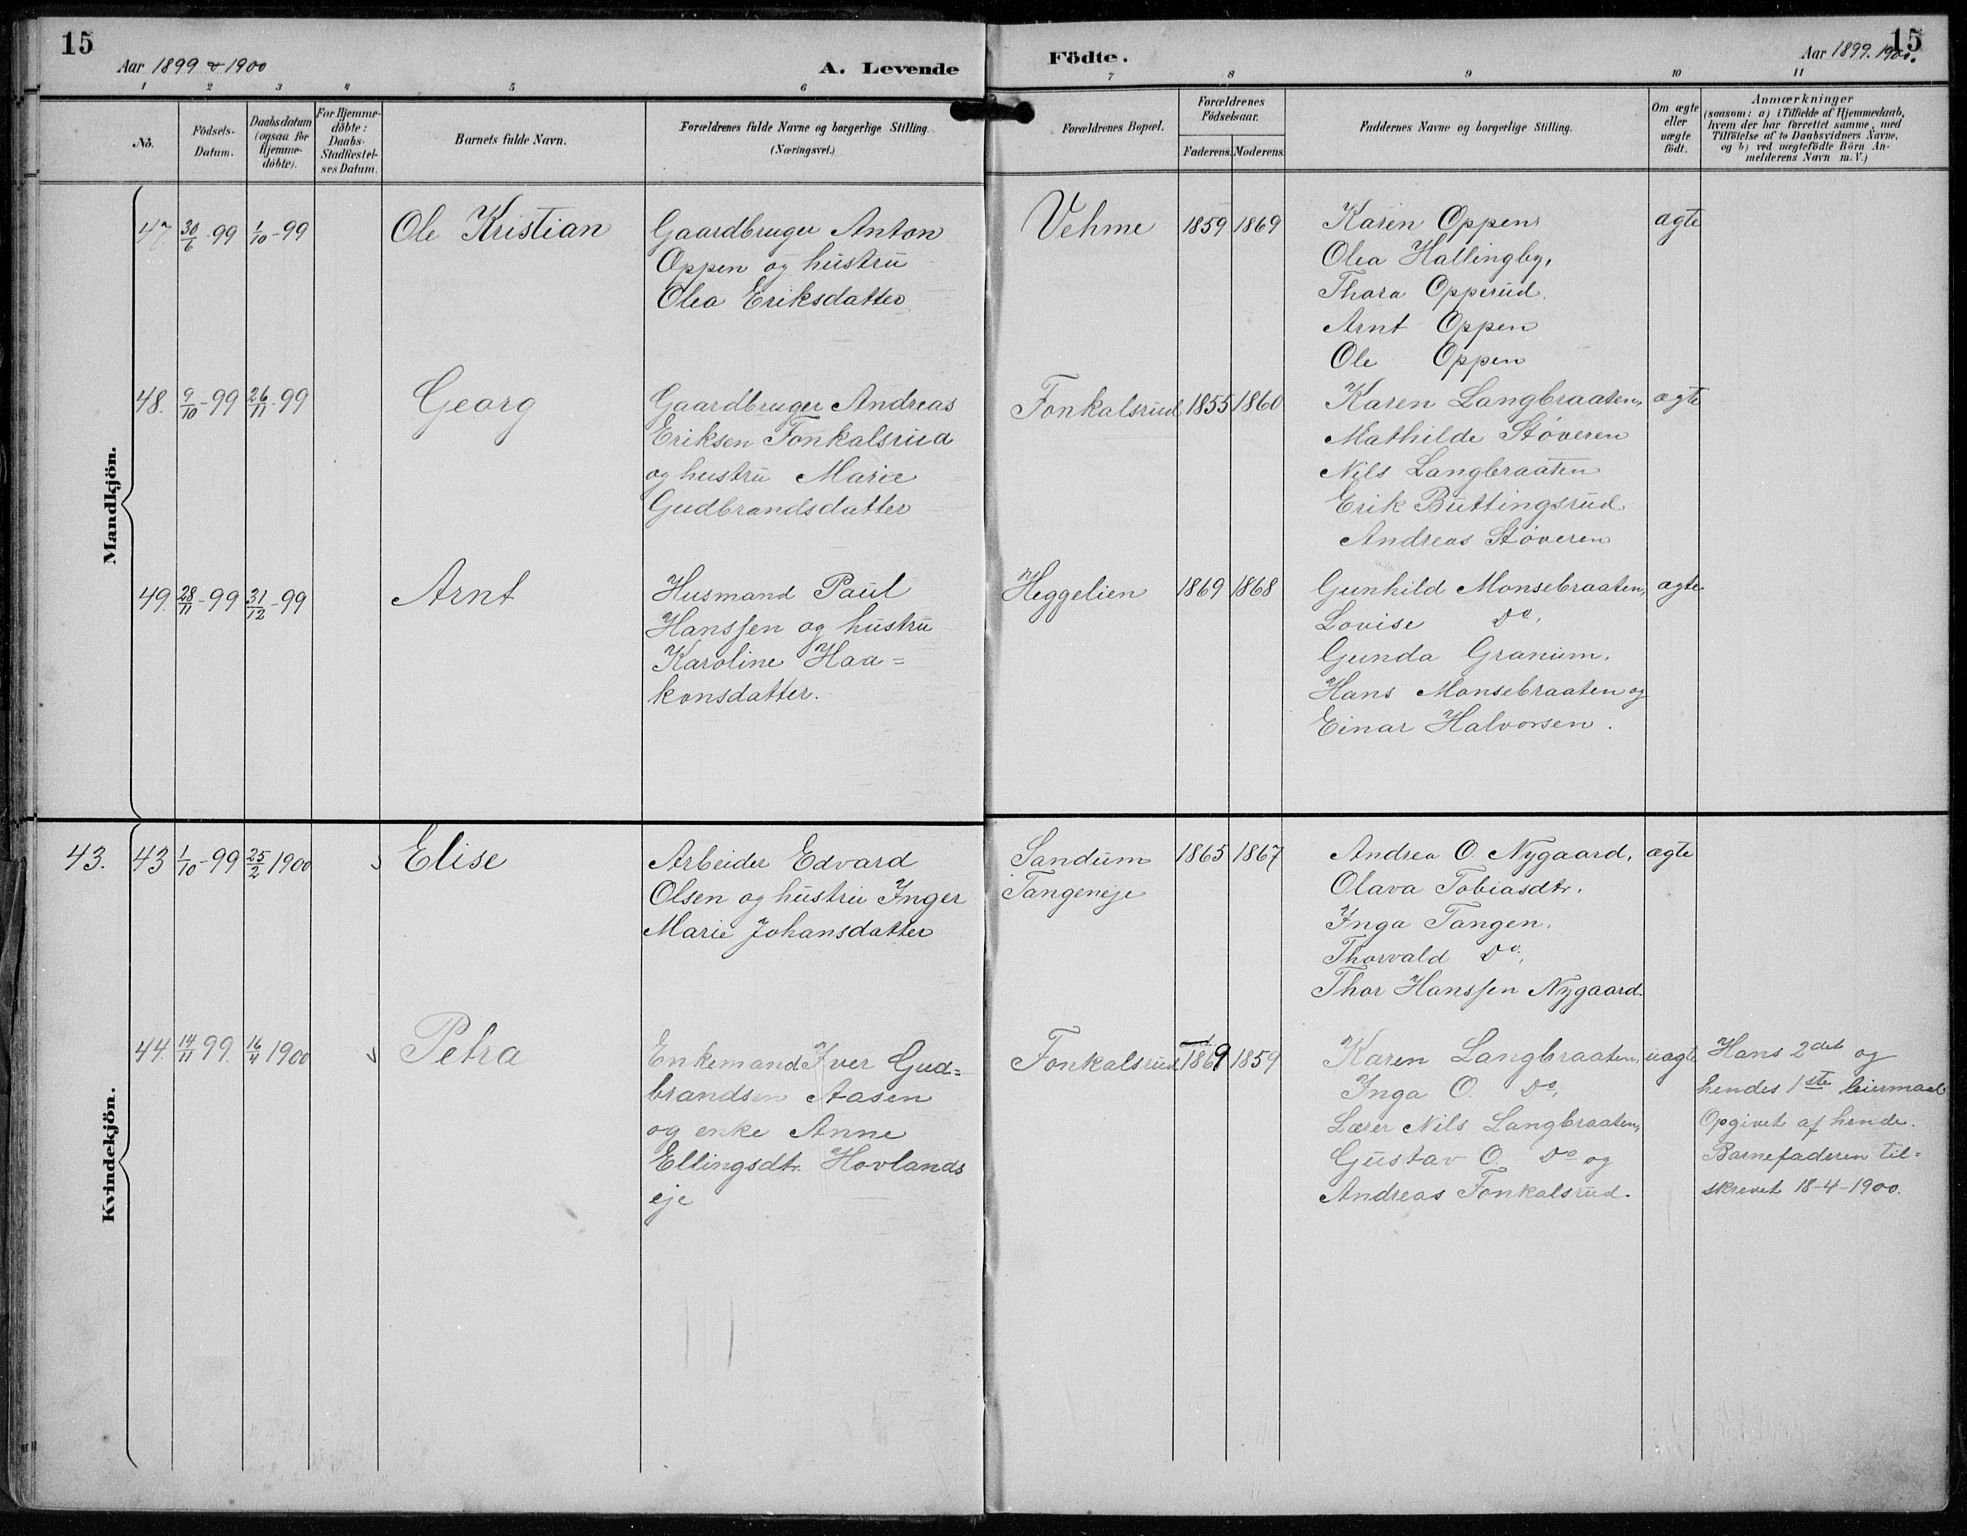 15
Aar 1899 & 1900
A. Levende
Födte.
Aar 1899. 1900.
15
1 2 3 4 5 6 7 8 9 10 11
No.
Födsels-
Datum.
Daabsdatum
(ogsaa for
Hjemme-
döbte).
For Hjemme-
döbte:
Daabs-
Stadfæstel-
ses Datum.
Barnets fulde Navn.
Forældrenes fulde Navne og borgerlige Stilling
(Næringsvei.)
Forældrenes Bopæl.
Forældrenes
Födselsaar.
Faderens. Moderens.
Faddernes Navne og borgerlige Stilling.
Om ægte
eller
uægte
födt.
Anmærkninger
(saasom: a) i Tilfælde af Hjemmedaab,
hvem der har forrettet samme, med
Tilföielse af to Daabsvidners Navne,
og b) ved uægtefödte Börn An-
melderens Navn m. V.)
Mandkjön.
47. 30/6-99 1/10-99
Ole Kristian
Gaardbruger Anton
Oppen og hustru
Olea Eriksdatter
Vehme 1859 1869
Karen Oppen,
Olea Hallingby,
Thora Opperud.
Arnt Oppen
Ole Oppen
ægte
48. 9/10-99 26/11-99
Georg
Gaardbruger Andreas
Eriksen Fonkalsrud
og hustru Marie
Gudbrandsdatter
Fonkalsrud 1855 1860
Karen Langbraaten,
Mathilde Støveren
Nils Langbraaten
Erik Buttingsrud
Andreas Støveren
ægte
49. 28/11-99 31/12-99
Arnt
Husmand Paul
Hanssen og hustru
Karoline Haa=
konsdatter.
Heggelien 1869 1868
Gunhild Monsebraaten,
Lovise Do,
Gunda Granum,
Hans Monsebraaten og
Einar Halvorsen.
ægte
Kvindekjön.
43. 43 1/10-99 25/2 1900
Elise
Arbeider Edvard
Olsen og hustru Inger
Marie Johansdatter
Sandum
Tangeneje
1865 1867
Andrea O. Nygaard,
Olava Tobiasdtr.
Inga Tangen,
Thorvald Do,
Thor Hanssen Nygaard.
ægte
44. 14/11 99. 16/4 1900
Petra
Enkemand Iver Gud=
brandsen Aasen
og enke Anne
Ellingsdtr. Hovlands
eje
Fonkalsrud 1869 1859
Karen Langbraaten,
Inga O. Do,
Lærer Nils Langbraaten,
Gustav O. Do og
Andreas Fonkalsrud.
uægte
Hans 2det og
hendes 1ste leiermaal
Opgivet af hende.
Barnefaderen til-
skrevet 18-4-1900.